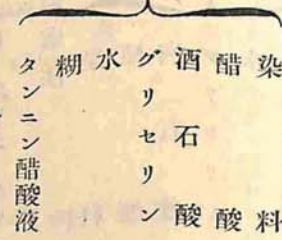 染料
醋酸
酒石酸
グリセリン
水
糊
タンニン醋酸液